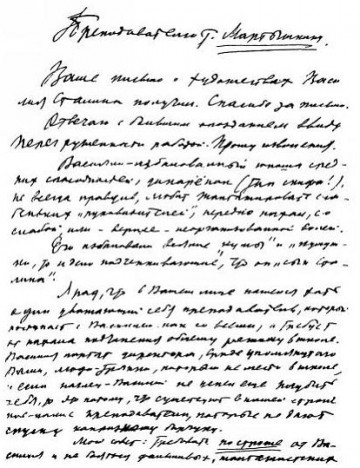 Преподавателю т. Мартышину.
Ваше письмо о художествах Васи-
лия Сталина получил. Спасибо за письмо.
Отвечаю с большим опозданием ввиду
перегруженности работой. Прошу извинения.
Василий – избалованный юноша сред-
них способностей, дикарёнок (тип скифа!),
не всегда правдив, любит шантажировать сла-
беньких "руководителей", нередко нахал, со
слабой или – вернее – неорганизованной волей.
Его избаловали всякие "кумы" и "кумуш-
ки", то и дело подчеркивающие, что он "сын Ста-
лина".
Я рад, что в Вашем лице нашелся хоть
один уважающий себя преподаватель, который
поступает с Василием, как со всеми, и требует
от нахала подчинения общему режиму в школе.
Василия портят директора, вроде упомянутого
Вами, люди-тряпки, которым не место в школе,
и если наглец-Василий не успел еще погубить
себя, то это потому, что существуют в нашей стране
кое-какие преподаватели, которые не дают
спуску капризному барчуку.
Мой совет: требовать построже от Ва-
силия и не бояться фальшивых, шантажистских